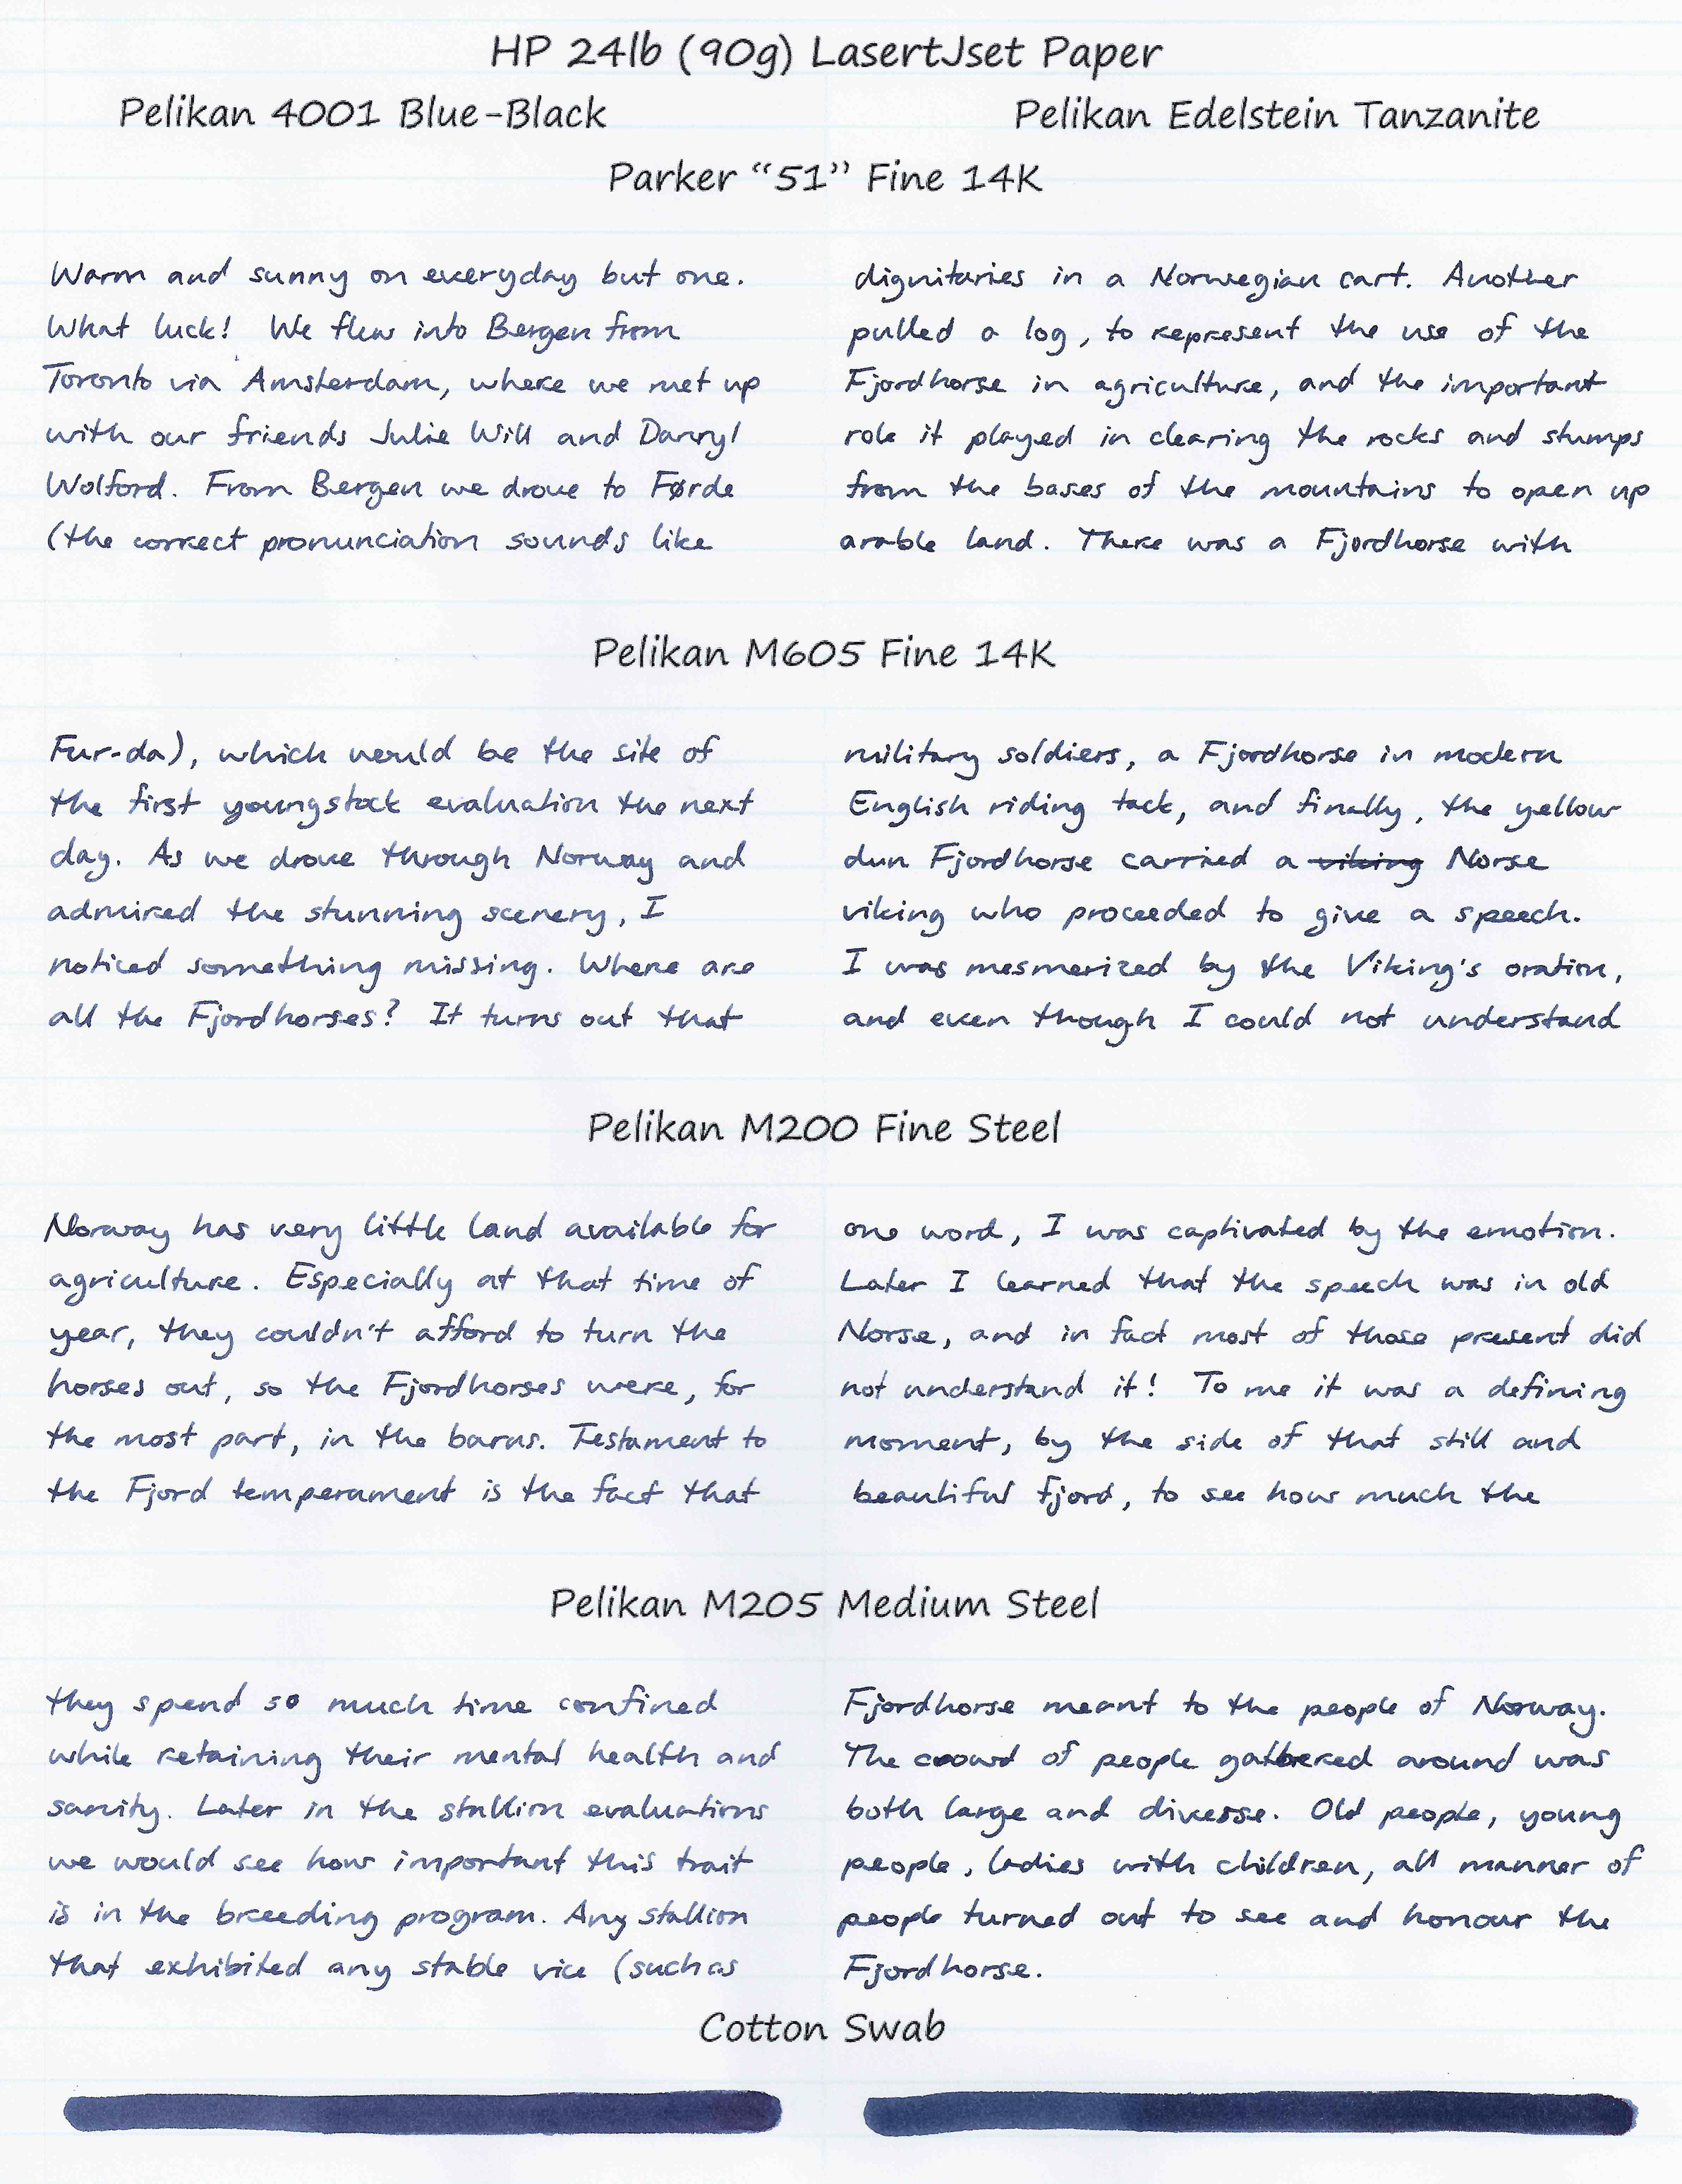 HP 24lb (90g) LasertJset Paper
Pelikan 4001 Blue-Black
Pelikan Edelstein Tanzanite
Parker “51” Fine 14K
Warm and sunny on everyday but one.
What luck! We flew into Bergen from
Toronto via Amsterdam, where we met up
with our friends Julie Will and Darryl
Wolford. From Bergen we drove to Førde
(the correct pronunciation sounds like
dignitaries in a Norwegian cart. Another
pulled a log, to represent the use of the
Fjordhorse in agriculture, and the important
role it played in clearing the rocks and stumps
from the bases of the mountains to open up
arable land. There was a Fjordhorse with
Pelikan M605 Fine 14K
Fur-da), which would be the site of
the first youngstock evaluation the next
day. As we drove through Norway and
admired the stunning scenery, I
noticed something missing. Where are
all the Fjordhorses? It turns out that
military soldiers, a Fjordhorse in modern
English riding tack, and finally, the yellow
dun Fjordhorse carried a viking Norse
viking who proceeded to give a speech.
I was mesmerized by the Viking's oration,
and even though I could not understand
Pelikan M200 Fine Steel
Norway has very little land available for
agriculture. Especially at that time of
year, they couldn't afford to turn the
horses out, so the Fjordhorses were, for
the most part, in the barns. Testament to
the Fjord temperament is the fact that
one word, I was captivated by the emotion.
Later I learned that the speech was in old
Norse, and in fact most of those present did
not understand it! To me it was a defining
moment, by the side of that still and
beautiful fjord, to see how much the
Pelikan M205 Medium Steel
they spend so much time confined
while retaining their mental health and
sanity. Later in the stallion evaluations
we would see how important this trait
is in the breeding program. Any stallion
that exhibited any stable vice (such as
Fjordhorse meant to the people of Norway.
The crowd of people gathered around was
both large and diverse. Old people, young
people, ladies with children, all manner of
people turned out to see and honour the
Fjordhorse.
Cotton Swab